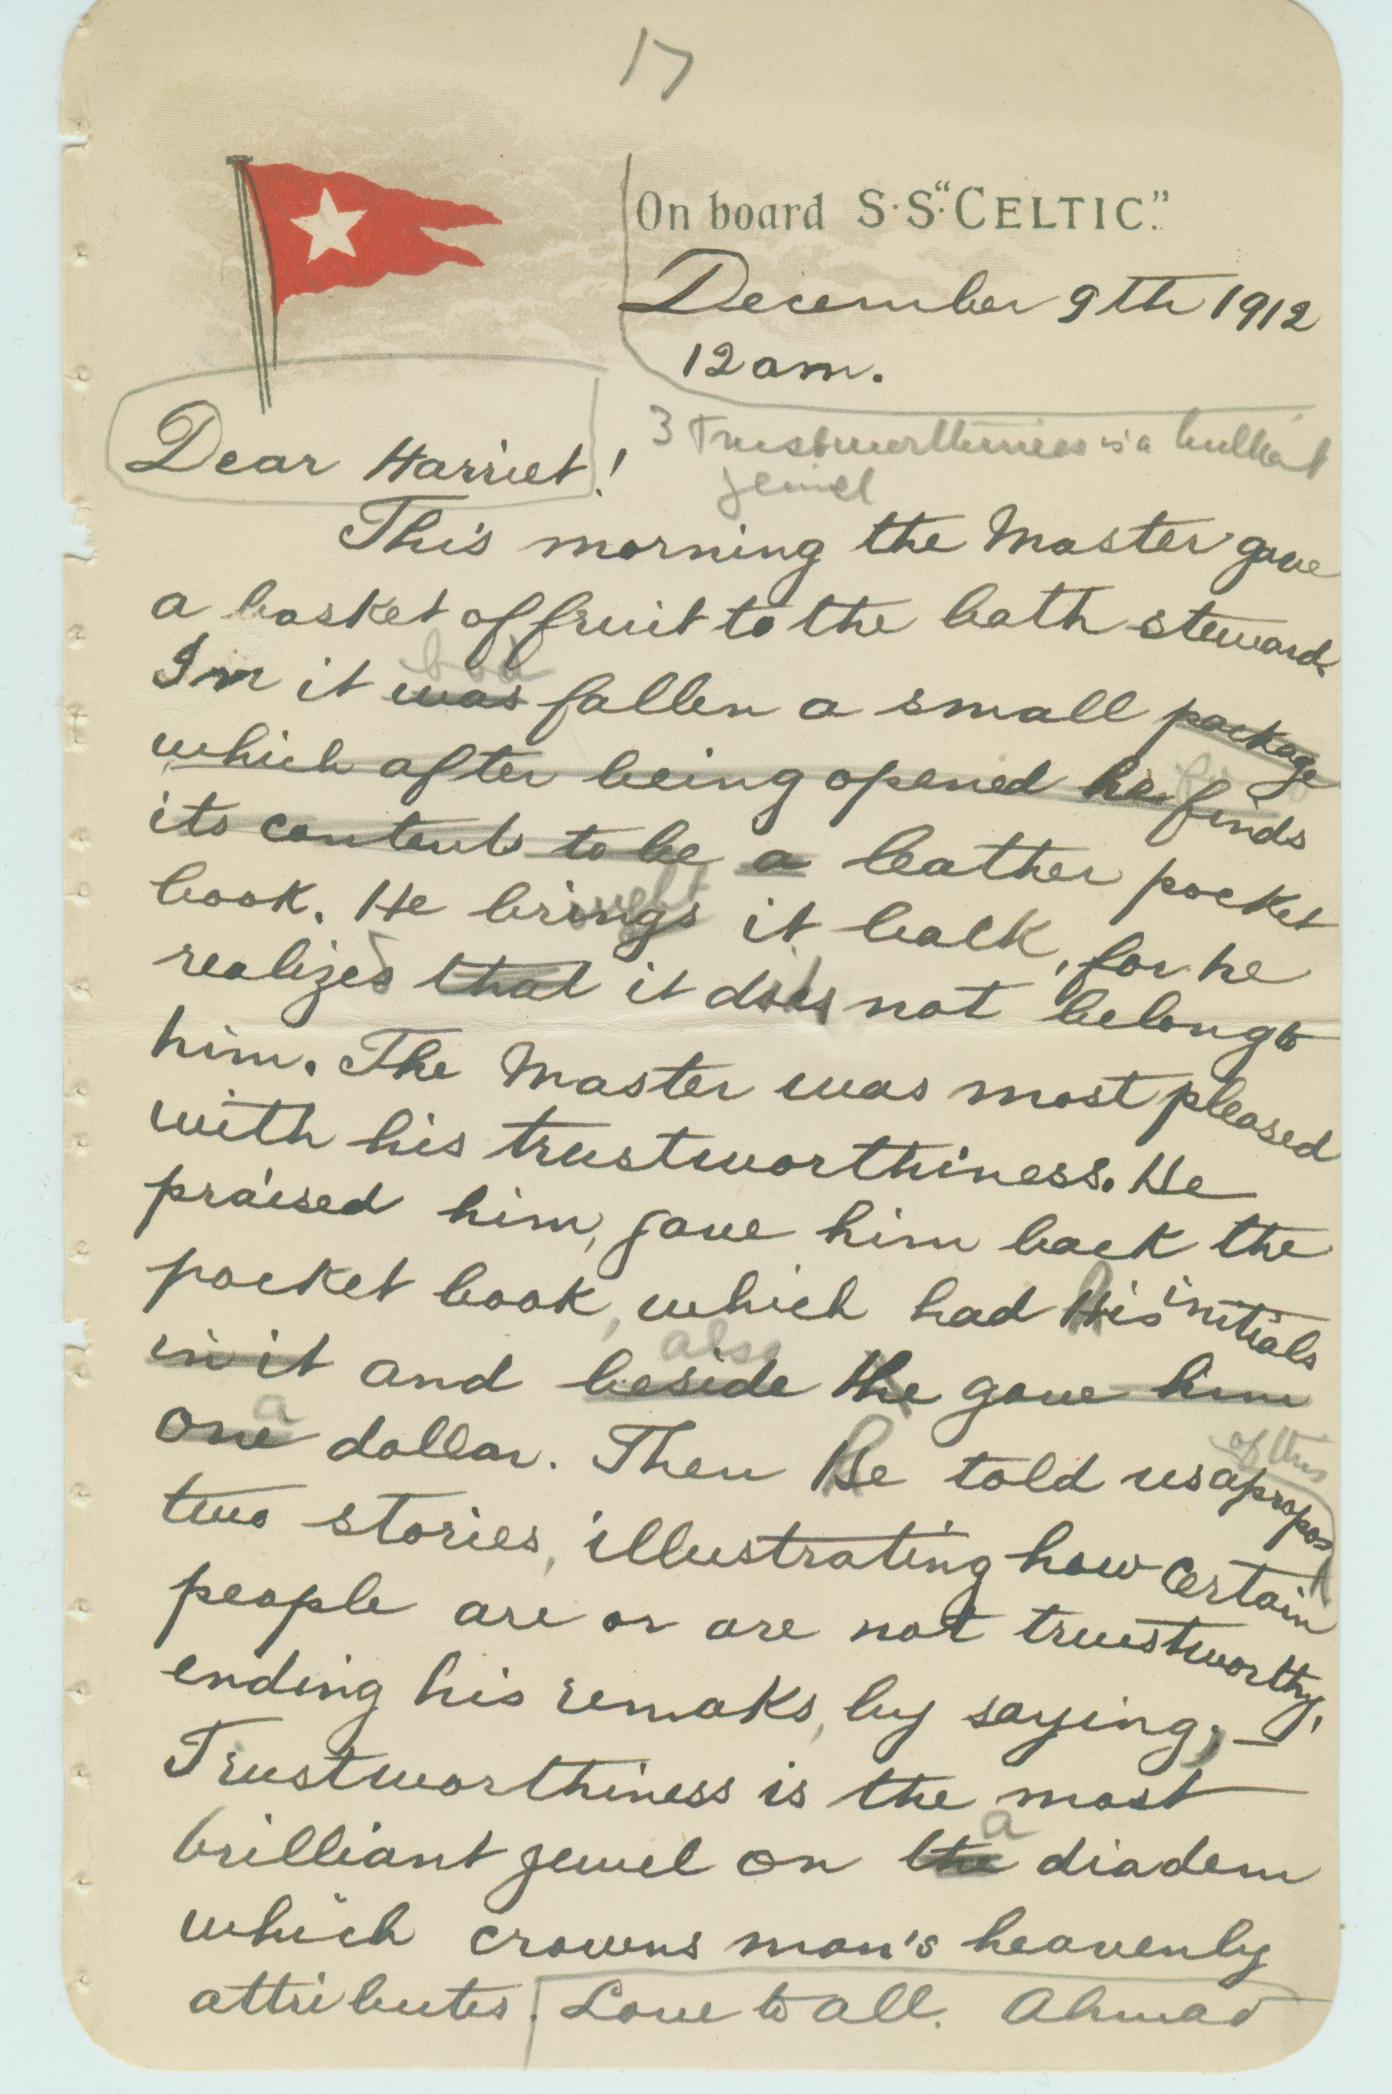 17
On board S.S. "CELTIC".
December 9th 1912
12 am.
Dear Harriet!
3 Trustworthiness is a brilliant
jewel
This morning the Master gave
a basket of fruit to the bath steward.
had
In it was fallen a small package
which after being opened he finds
its contents to be a leather pocket
book. He brings it back, for he
realizes that it does not belong to
him. The Master was most pleased
with his trustworthiness. He
praised him, gave him back the
pocket book, which had His initials
also
in it and beside the gave him
a
one dollar. Then He told us apropos
of this
two stories, illustrating how certain
people are or are not trustworthy,
ending his remaks, by saying, —
Trustworthiness is the most
a
brilliant jewel on the diadem
which crowns man's heavenly
attributes. Love to all. Ahmad